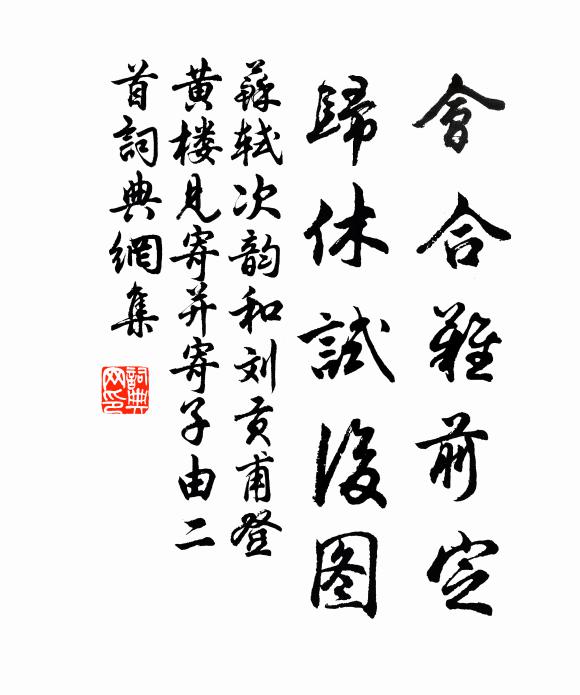 會合難前定
歸休試後图
蘇軾次韵和刘贡甫登
黄楼见寄并寄子由二
首詞典網集
詞典网印